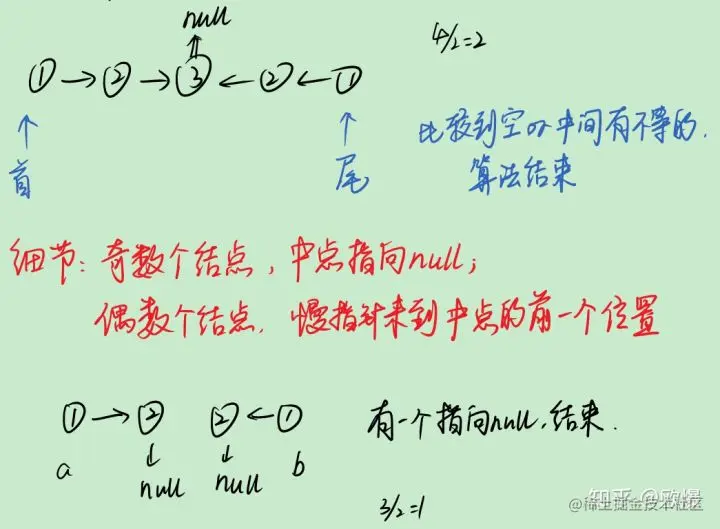 null
4/2=2
① → ② → ③ ← ② ← ①
首
尾
比较到空or中间有不等的.
算法结束
细节: 奇数个结点, 中点指向null;
偶数个结点, 慢指针来到中点的前一个位置
① → ② ② ← ①
有一个指向null,结束.
a
null
null
b
3/2=1
知乎 @欧爆
@稀土掘金技术社区